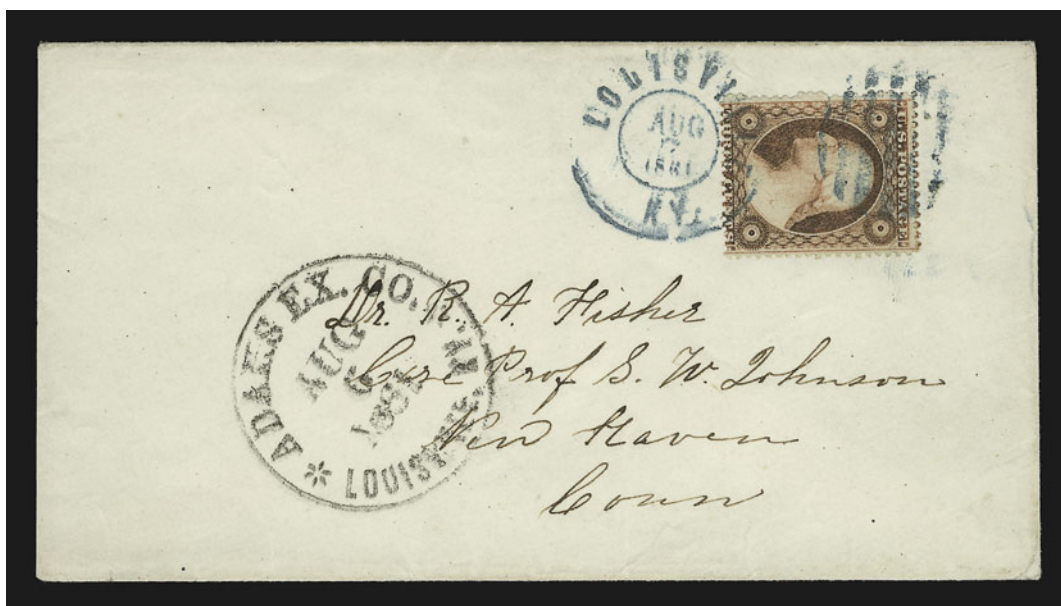 LOUISVI
AUG
17
1861
KY.
U.S. POSTAGE
ADAMS EX. CO.
AUG
6
1861
* LOUISVILLE, KY.
Dr. R. A. Fisher
Care Prof S. W. Johnson
New Haven
Conn